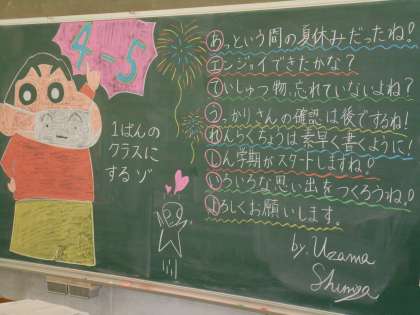 4-5
1ばんの
クラスに
するゾ
あっという間の夏休みだったね!
エンジョイできたかな?
ていしゅつ物、忘れていないよね?
うっかりさんの確認は後でするね!
れんらくちょうは素早く書くように!
しん学期がスタートしますね!
いろいろな思い出をつくろうね!
よろしくお願いします。
by. Uzama